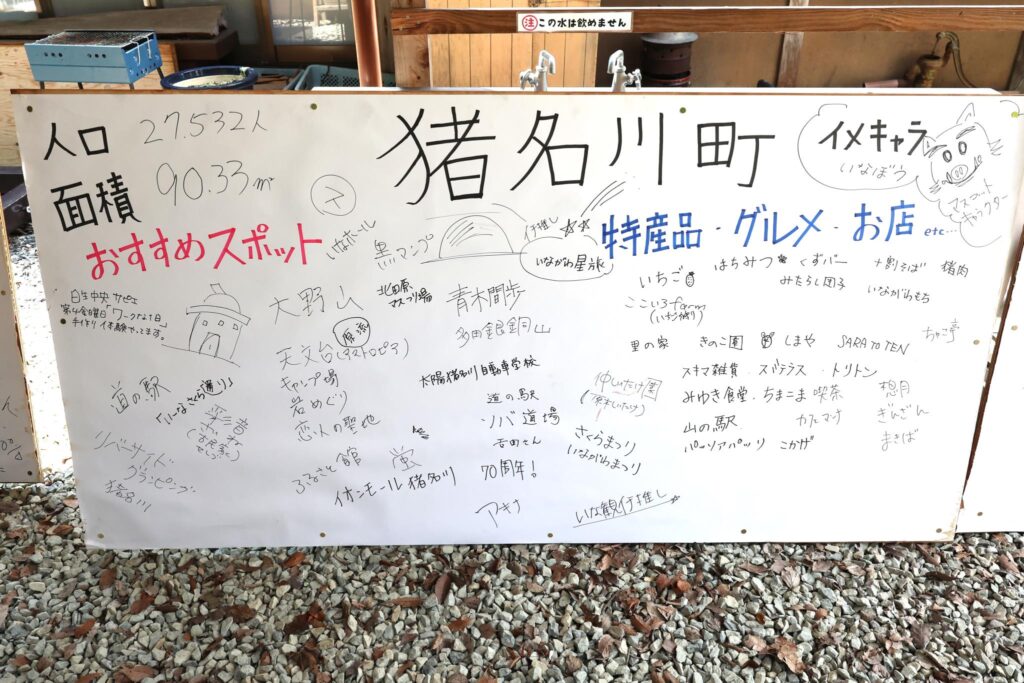 注 この水は飲めません
人口 27.532人
面積 90.33㎡
猪名川町
イメキャラ
いなぼう
マスコット
キャラクター
おすすめスポット
特産品・グルメ・お店 etc…
いなホール
黒マンプ
いながわ星氷
北田原
マスつり場
大野山
源流
天文台(アストロピア)
キャンプ場
岩めぐり
恋人の聖地
ふるさと館
蛍
イオンモール猪名川
青木間歩
多田銀銅山
太陽猪名川自動車学校
道の駅
ソバ道場
吉田さん
70周年!
アキナ
日生中央サピエ
第4金曜日「ワークな1日」
手作り体験やってます。
道の駅
「いーなさくら通り」
リバーサイド
グランピング
猪名川
いちご
はちみつ
くずバー
みたらし団子
十割そば
猪肉
いながわもち
ここいろfarm
(いちご狩り)
里の家
きのこ園
しまや
SARATOTEN
ちゃこ亭
スキマ雑貨・スバテラス・トリトン
仲しいたけ園
(原木しいたけ)
みゆき食堂・ちまこま喫茶
想月
山の駅
カフェマナ
ぎんざん
パーソアパッソ
こかげ
まきば
さくらまつり
いながわまつり